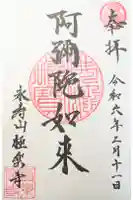 奉拝
令和六年二月十一日
阿彌陀如来
永寿山極楽寺